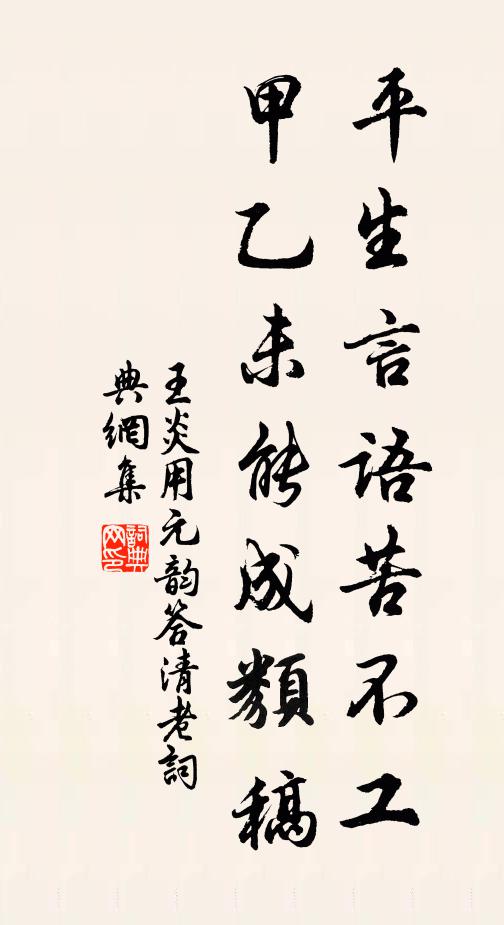 平生言語苦不工
甲乙未能成類稿
王炎用元韵答清老詞
典網集
詞典网印